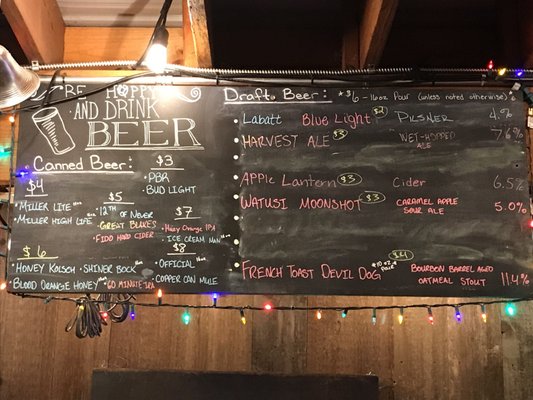 BE HOPPY
AND DRINK
BEER
Canned Beer:
$3
PBR
BUD LIGHT
$4
MILLER LITE
MILLER HIGH LIFE
$5
12TH OF NEVER
GREAT BLUKES
FIDO HARD CIDER
$7
HAZY ORANGE IPA
ICE CREAM MAN
$6
HONEY KOLSCH
SHINER BOCK
BLOOD ORANGE HONEY
60 MINUTE IPA
$8
OFFICIAL
COPPER CAN MULE
Draft Beer: *$6 - 16oz Pour (unless noted otherwise)
Labatt Blue Light $2 PILSNER 4%
HARVEST ALE $3 WET-HOPPED ALE
APPLE LANTERN $3 Cider 6.5%
WATUSI MOONSHOT $3 CARAMEL APPLE SOUR ALE 5.0%
FRENCH TOAST DEVIL DOG *10 oz POUR $4 BOURBON BARREL AGED OATMEAL STOUT 11.4%